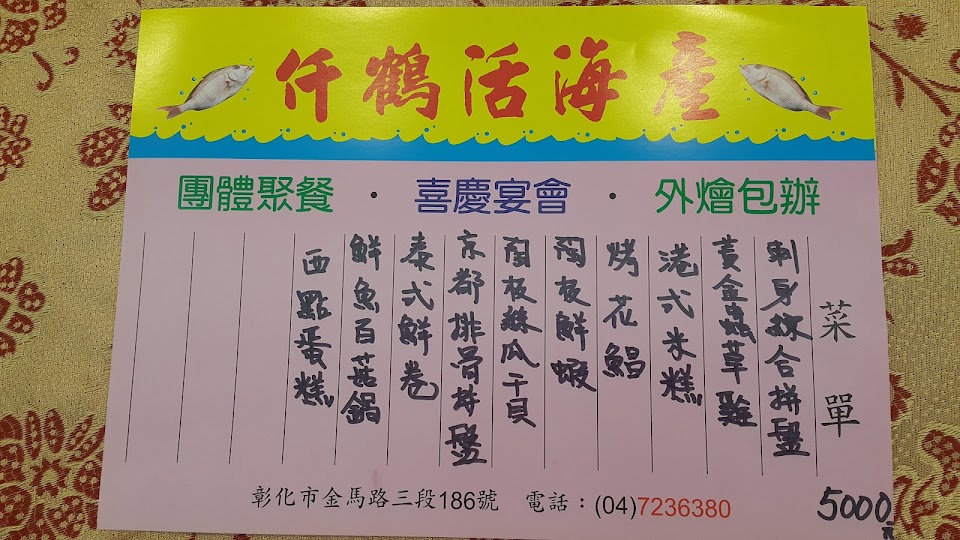 仟鶴活海產
團體聚餐・喜慶宴會・外燴包辦
菜單
刺身綜合拼盤
黃金蟲草雞
港式米糕
烤花鯧
陶板鮮蝦
陶板絲瓜干貝
京都排骨拼盤
泰式鮮卷
鮮魚百菇鍋
西點蛋糕
5000元
彰化市金馬路三段186號 電話：(04)7236380